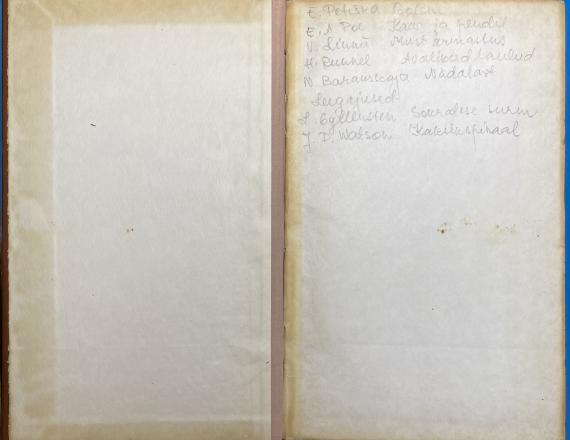 E. Petiška
E. A Poe Kaev ja pendel
V. Linna Must armastus
H. Runnel Avalikud laulud
N Baranskaja Nädalast
Leegiused
L. Gyllensten Sokratese surm
J D. Watson Kaksikspiraal